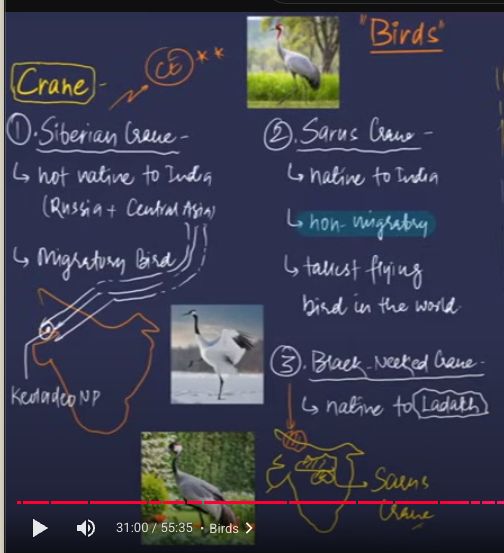 "Birds"
CE **
Crane -
①. Siberian Crane -
↳ not native to India
(Russia + Central Asia)
↳ Migratory Bird
Keoladeo NP
②. Sarus Crane -
↳ native to India
↳ non-migratory
↳ tallest flying
bird in the world
③. Black-Necked Crane -
↳ native to Ladakh
Sarus
Crane
31:00 / 55:35 • Birds >